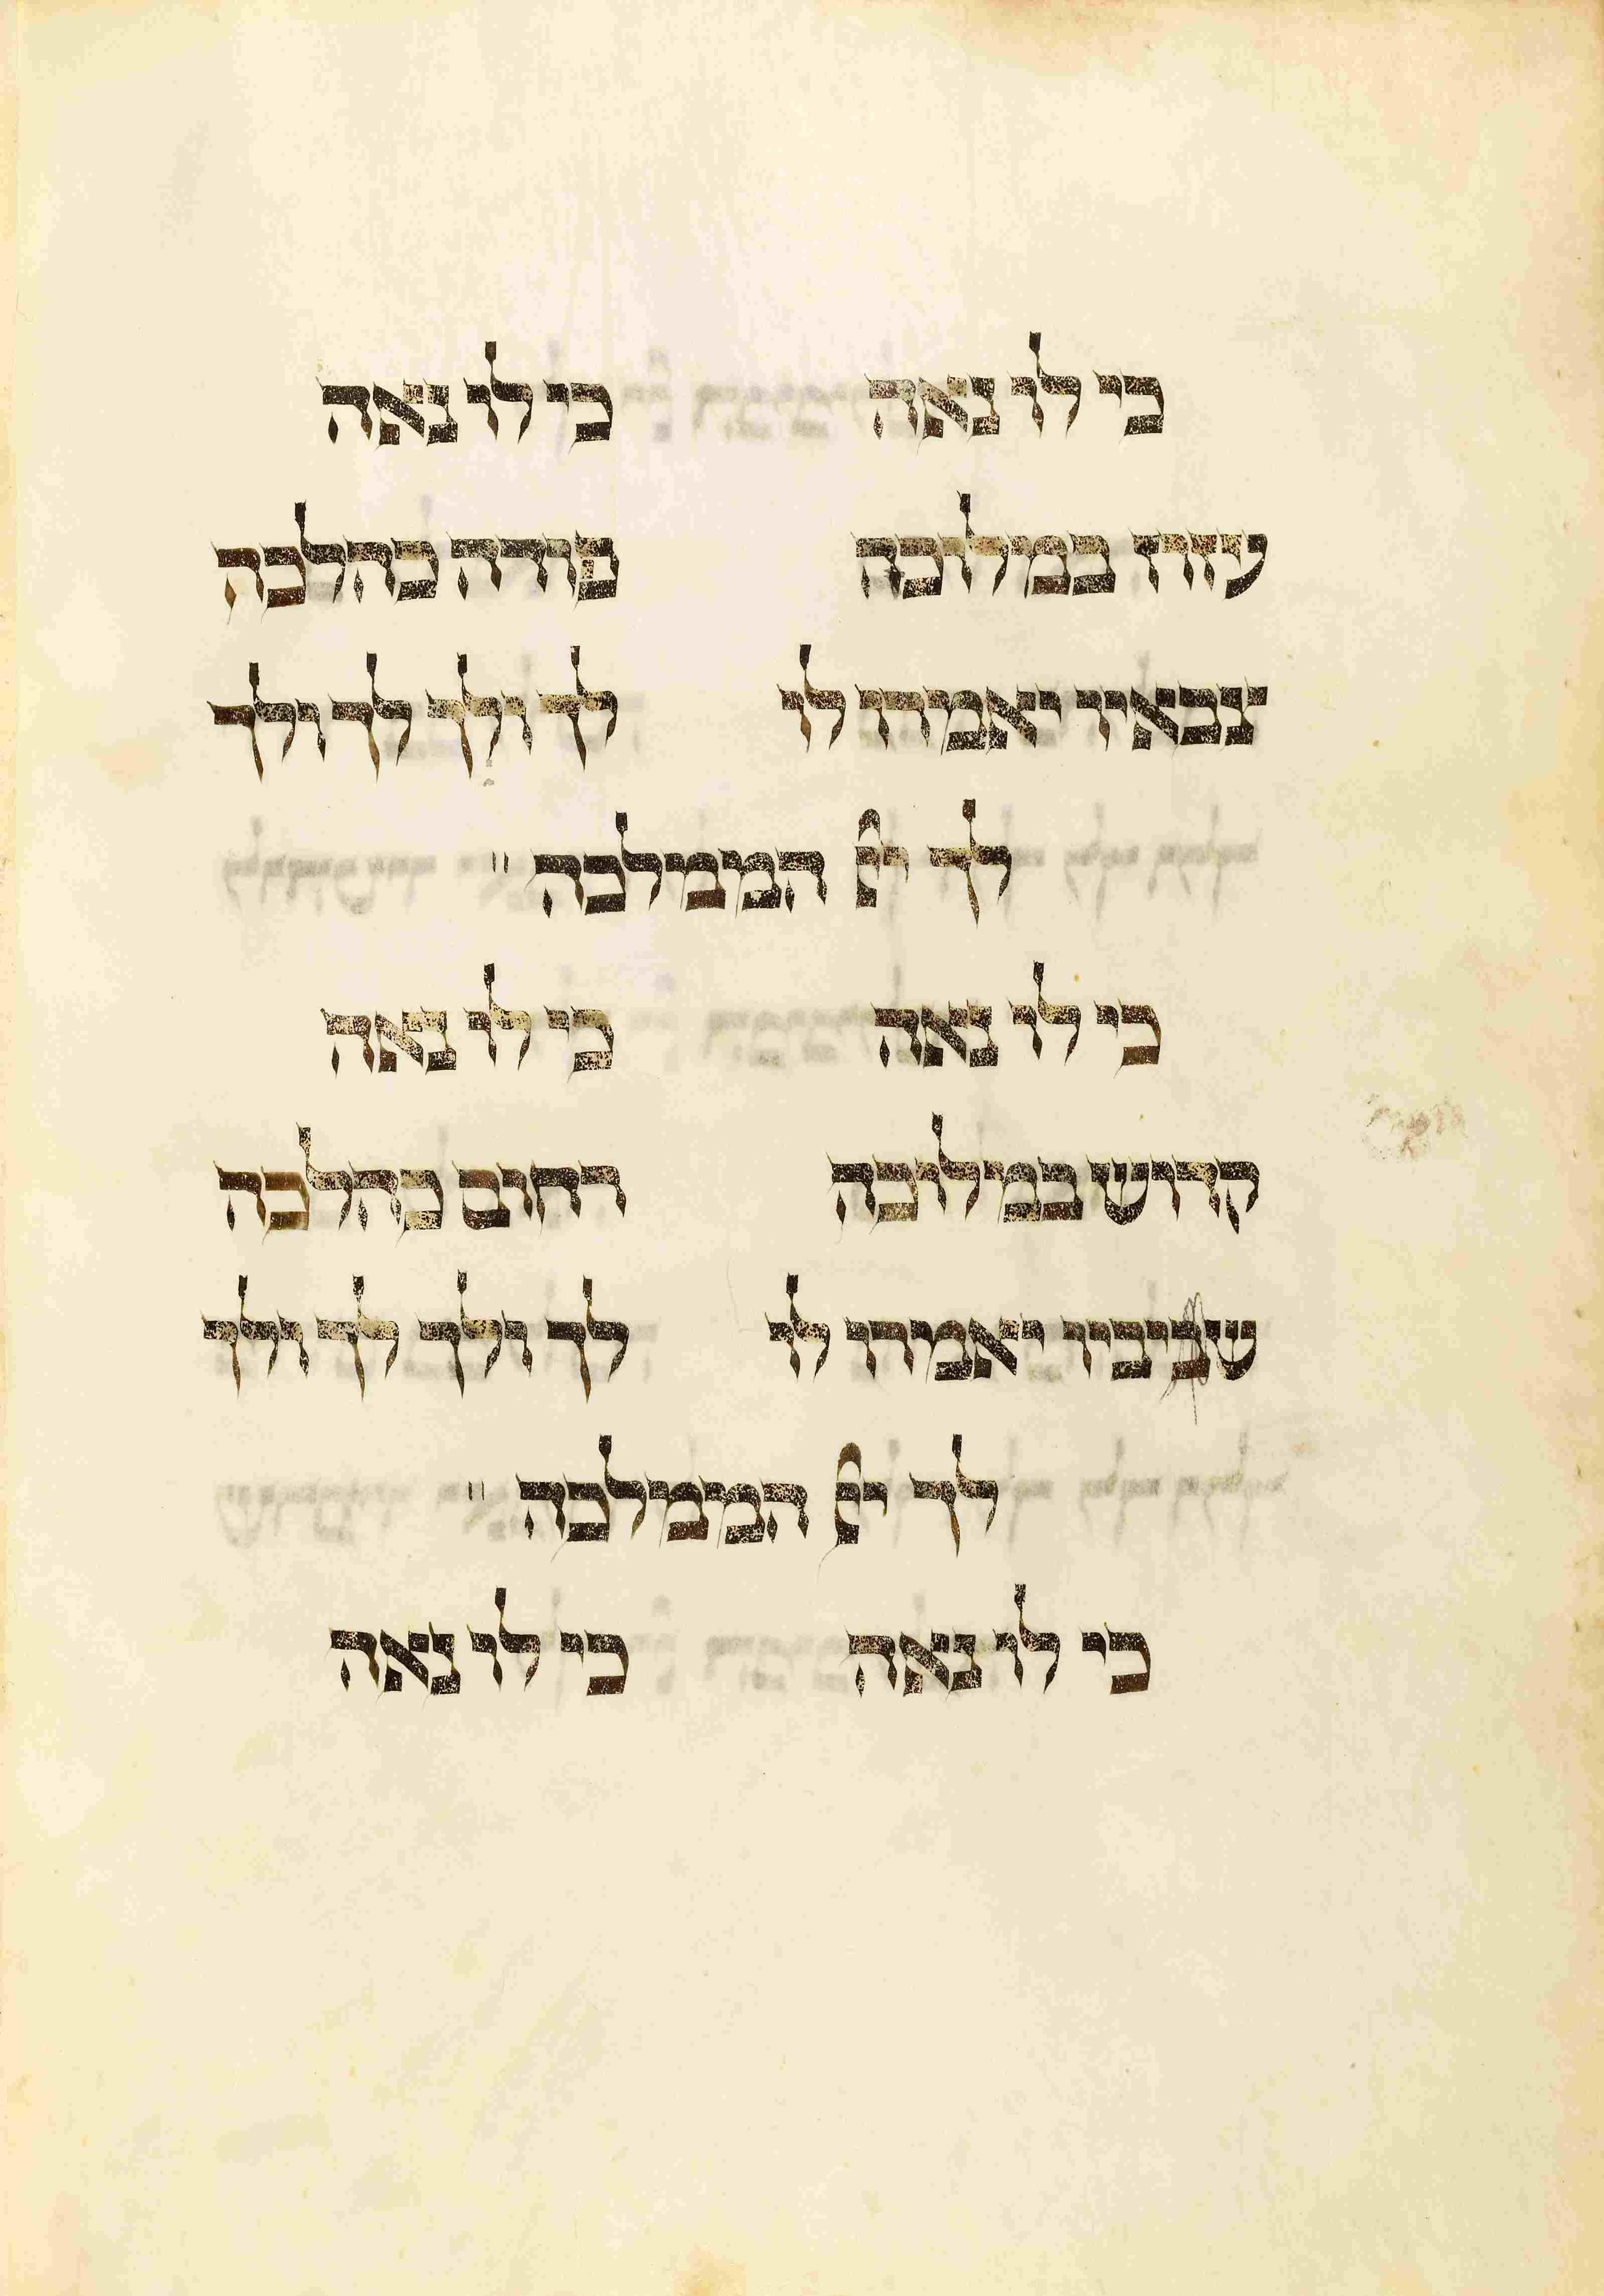 כי לו נאה כי לו נאה
עזוז במלוכה פודה כהלכה
צבאיו יאמרו לו לך ולך לך ולך
לך יי הממלכה "
כי לו נאה כי לו נאה
קדוש במלוכה רחום כהלכה
שביביו יאמרו לו לך ולך לך ולך
לך יי הממלכה "
כי לו נאה כי לו נאה